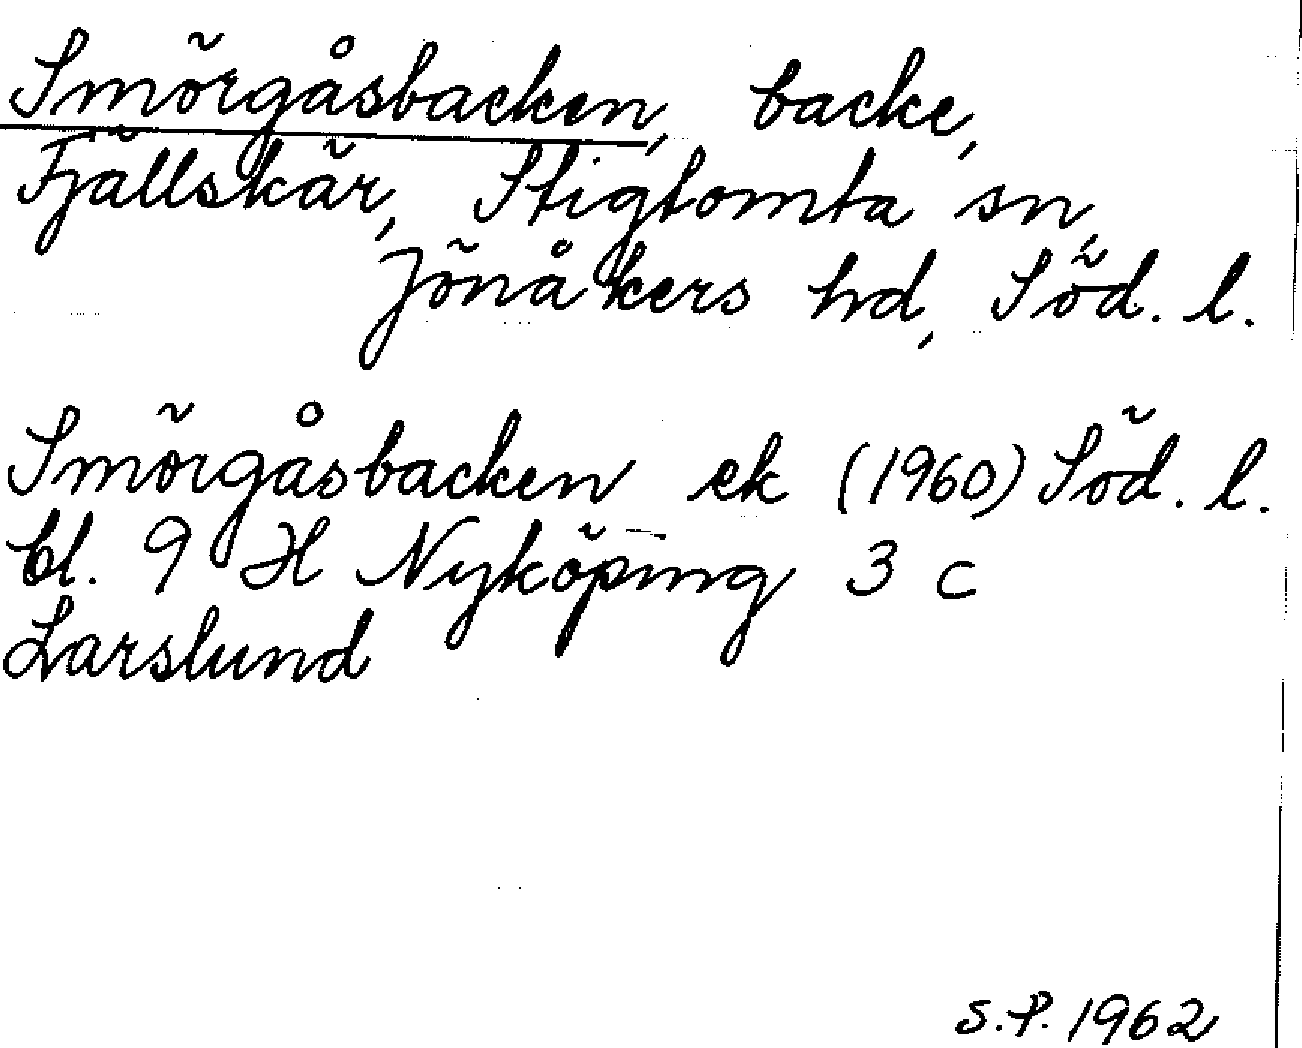 Smörgåsbacken, backe,
Fjällskär, Stigtomta sn,
Jönåkers hd, Söd. l.
Smörgåsbacken ek (1960) Söd. l.
bl. 9 H Nyköping 3 c
Larslund
S.P. 1962